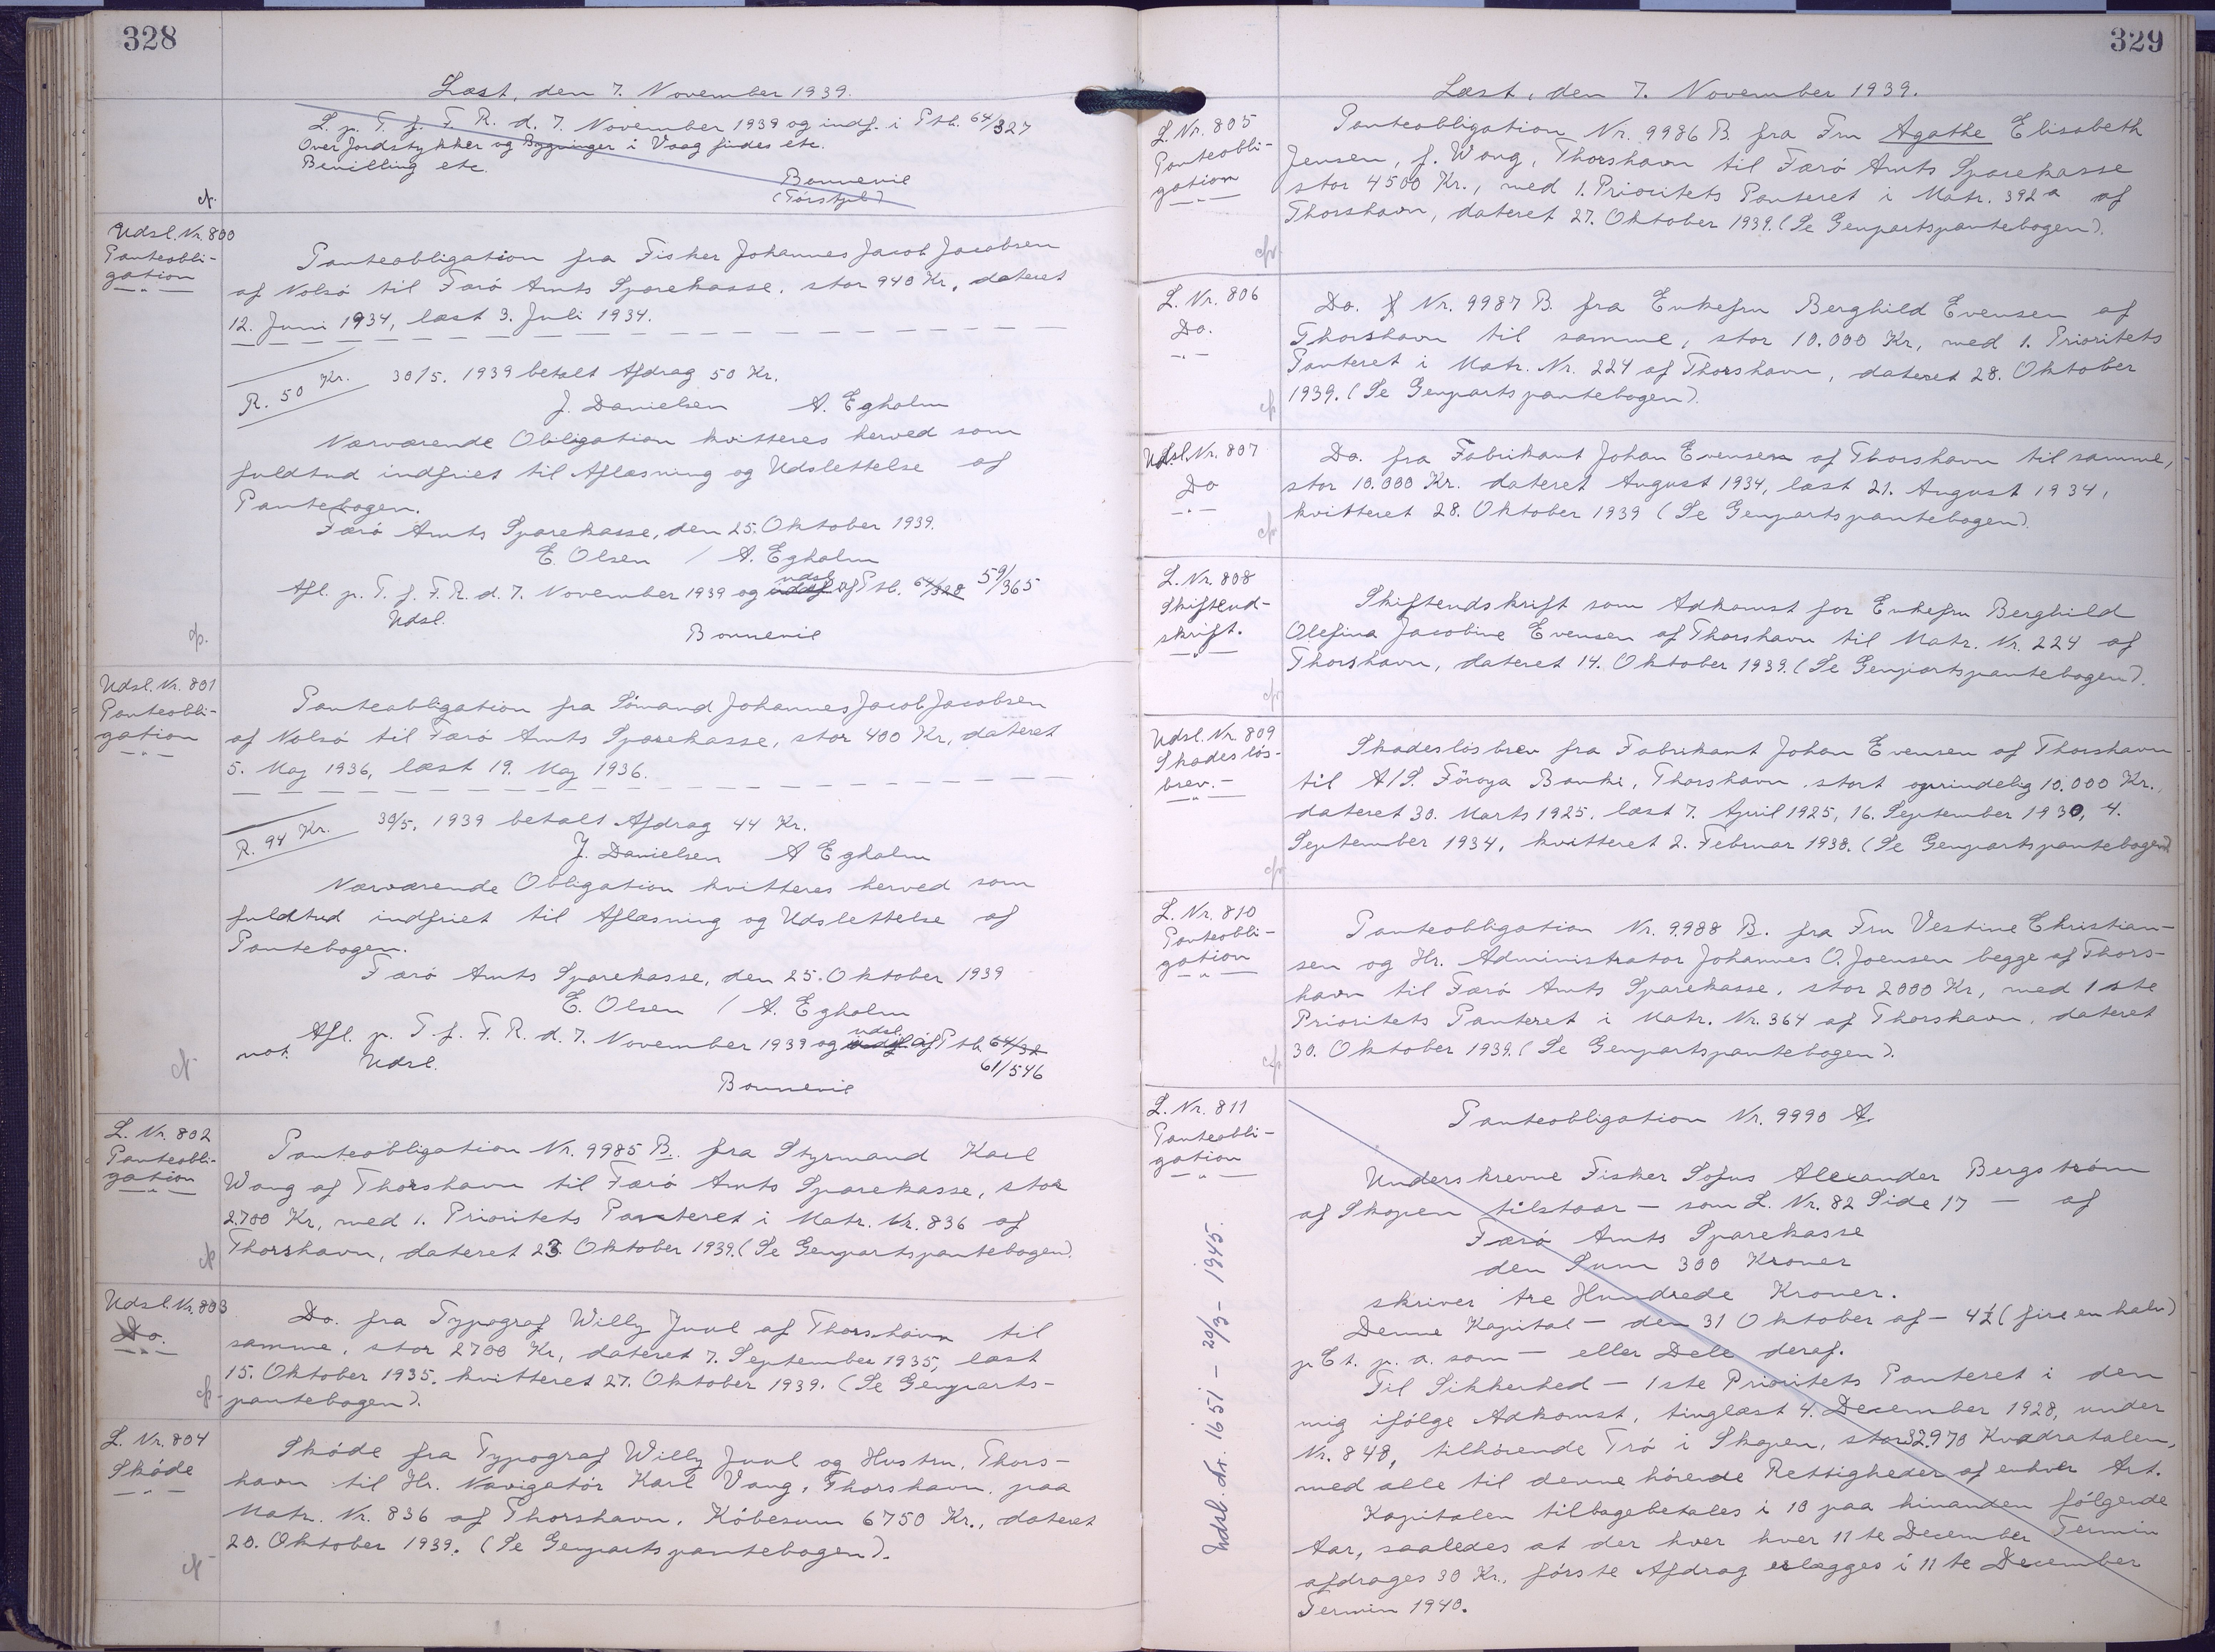 328
Læst, den 7. November 1939.
L. p. T. f. F. R. d. 7. November 1939 og indf. i Ptb. 64/327
Over Jordstykker og Bygninger i Vaag findes etc.
Bevilling etc.
Bonnevie
(Förstgb.)
Udsl. Nr. 800
Panteobli-
gation
Panteobligation fra Fisker Johannes Jacob Jacobsen
af Nolsö til Færö Amts Sparekasse, stor 940 Kr., dateret
12. Juni 1934, læst 3. Juli 1934.
R. 50 Kr. 30/5. 1939 betalt Afdrag 50 Kr.
J. Danielsen A. Egholm
Nærværende Obligation kvitteres herved som
fuldtud indfriet til Aflæsning og Udslettelse af
Pantebogen.
Færö Amts Sparekasse, den 25. Oktober 1939.
E. Olsen / A. Egholm
udsl.
Afl. p. T. f. F. R. d. 7. November 1939 og indf. af Ptb. 64/328 59/365
Udsl.
Bonnevie
Udsl. Nr. 801
Panteobli-
gation
Panteobligation fra Sömand Johannes Jacob Jacobsen
af Nolsö til Færö Amts Sparekasse, stor 400 Kr, dateret
5. Maj 1936, læst 19. Maj 1936.
R. 94 Kr. 30/5. 1939 betalt Afdrag 44 Kr.
J. Danielsen A Egholm
Nærværende Obligation kvitteres herved som
fuldtud indfriet til Aflæsning og Udslettelse af
Pantebogen.
Færö Amts Sparekasse, den 25. Oktober 1939
E. Olsen / A. Egholm
udsl.
Afl. p. T. f. F. R. d. 7. November 1939 og indf. af Ptb. 64/32
not. Udsl. 61/546
Bonnevie
L. Nr. 802
Panteobli-
gation
Panteobligation Nr. 9985 B. fra Styrmand Karl
Wang af Thorshavn til Færö Amts Sparekasse, stor
2700 Kr, med 1. Prioritets Panteret i Matr. Nr. 836 af
Thorshavn, dateret 23. Oktober 1939. (Se Genpartspantebogen).
Udsl. Nr. 803
Do.
Do. fra Typograf Willy Juul af Thorshavn til
samme, stor 2700 Kr, dateret 7. September 1935, læst
15. Oktober 1935. kvitteret 27. Oktober 1939. (Se Genparts-
pantebogen).
L. Nr. 804
Sköde
Sköde fra Typograf Willy Juul og Hustru, Thors-
havn til Hr. Navigatör Karl Vang, Thorshavn, paa
Matr. Nr. 836 af Thorshavn, Köbesum 6750 Kr., dateret
20. Oktober 1939. (Se Genpartspantebogen).
329
Læst, den 7. November 1939.
L. Nr. 805
Panteobli-
gation
Panteobligation Nr. 9986 B. fra Fru Agathe Elisabeth
Jensen, f. Wang, Thorshavn til Færö Amts Sparekasse
stor 4500 Kr., med 1. Prioritets Panteret i Matr. 392a af
Thorshavn, dateret 27. Oktober 1939. (Se Genpartspantebogen).
L. Nr. 806
Do.
Do. Nr. 9987 B. fra Enkefru Berghild Evensen af
Thorshavn til samme, stor 10.000 Kr, med 1. Prioritets
Panteret i Matr. Nr. 224 af Thorshavn, dateret 28. Oktober
1939. (Se Genpartspantebogen).
Udsl. Nr. 807
Do
Do. fra Fabrikant Johan Evensen af Thorshavn til samme,
stor 10.000 Kr. dateret August 1934, læst 21. August 1934,
kvitteret 28. Oktober 1939 (Se Genpartspantebogen).
L. Nr. 808
Skifteud-
skrift.
Skifteudskrift som Adkomst for Enkefru Berghild
Olefina Jacobine Evensen af Thorshavn til Matr. Nr. 224 af
Thorshavn, dateret 14. Oktober 1939. (Se Genpartspantebogen).
Udsl. Nr. 809
Skadeslös-
brev.
Skadeslösbrev fra Fabrikant Johan Evensen af Thorshavn
til A/S. Föroya Banki, Thorshavn, stort oprindelig 10.000 Kr.,
dateret 30. Marts 1925, læst 7. April 1925, 16. September 1930, 4.
September 1934, kvitteret 2. Februar 1938. (Se Genpartspantebogen)
L. Nr. 810
Panteobli-
gation
Panteobligation Nr. 9988 B. fra Fru Vestine Christian-
sen og Hr. Administrator Johannes O. Joensen begge af Thors-
havn til Færö Amts Sparekasse, stor 2000 Kr, med 1ste
Prioritets Panteret i Matr. Nr. 364 af Thorshavn, dateret
30. Oktober 1939. (Se Genpartspantebogen).
L. Nr. 811
Panteobli-
gation
Udsl. Nr. 1651 - 20/3 - 1945.
Panteobligation Nr. 9990 A.
Underskrevne Fisker Sofus Alexander Bergström
af Skopen tilstaar - som L. Nr. 82 Side 17 - af
Færö Amts Sparekasse
den Sum 300 Kroner
skriver tre Hundrede Kroner.
Denne Kapital - den 31 Oktober af - 4½ (fire en halv)
pCt. p. a. som - eller Dele deraf.
Til Sikkerhed - 1ste Prioritets Panteret i den
mig ifölge Adkomst, tinglæst 4. December 1928, under
Nr. 848, tilhörende Trö i Skopen, stor 32970 Kvadratalen,
med alle til denne hörende Rettigheder af enhver Art.
Kapitalen tilbagebetales i 10 paa hinanden fölgende
Aar, saaledes at der hver hver 11te December Termin
afdrages 30 Kr., förste Afdrag erlægges i 11te December
Termin 1940.